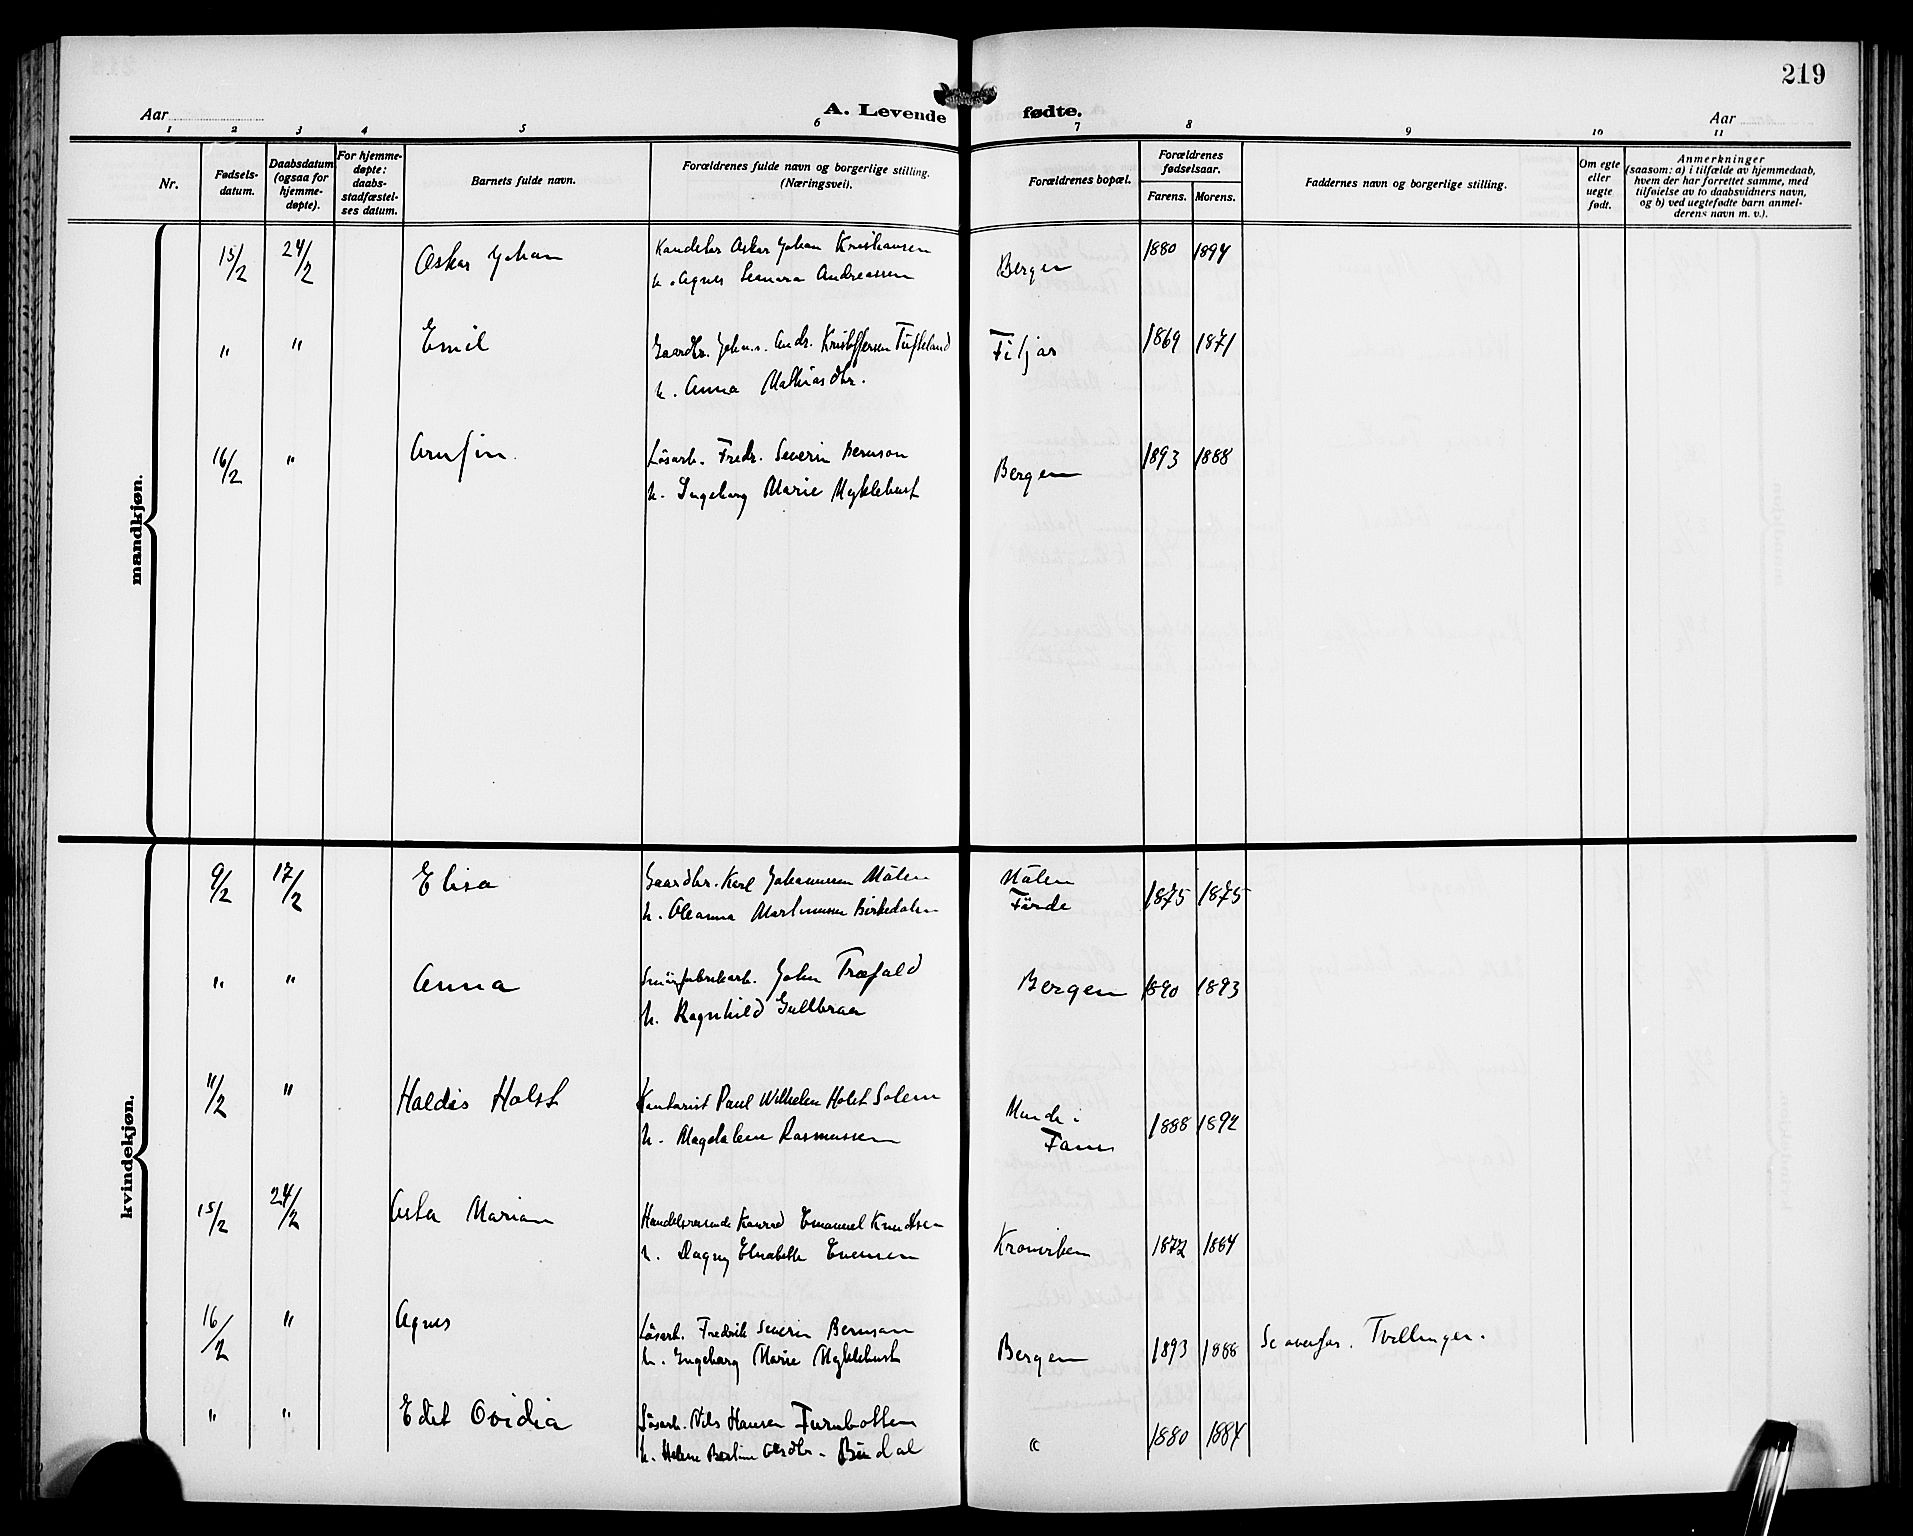 219
A. Levende fødte.
Aar
Aar
1 2 3 4 5 6 7 8 9 10 11
Nr.
Fødsels-
datum.
Daabsdatum
(ogsaa for
hjemme-
døpte).
For hjemme-
døpte:
daabs-
stadfæstel-
ses datum.
Barnets fulde navn.
Forældrenes fulde navn og borgerlige stilling.
(Næringsvei).
Forældrenes bopæl.
Forældrenes
fødselsaar.
Farens. Morens.
Faddernes navn og borgerlige stilling.
Om egte
eller
uegte
født.
Anmerkninger
(saasom: a) i tilfælde av hjemmedaab,
hvem der har forrettet samme, med
tilføielse av to daabsvidners navn,
og b) ved uegtefødte barn anmel-
derens navn m. v.).
mandkjøn.
15/2 24/2 Oskar Johan Oskar Johan Kristiansen Bergen 1880 1894
h. Agnes Andreassen
" " Emil Gaardbr. Johs. Andr. Kristoffersen Tufteland Fitjar 1869 1871
h. Anna Mathiasdtr.
16/2 " Arnfin. Løsarb. Fredr. Severin Berntson Bergen 1893 1888
h. Ingeborg Marie Myklebust
kvindekjøn.
9/2 17/2 Elisa Gaardbr. Karl Johannesen Målen Målen 1875 1875
h. Oleanna Martinussen Birkedalen Førde
" " Anna Smörfabrikarb. John Træfald Bergen 1890 1893
h. Ragnhild Gullbraa
11/2 " Haldis Holst Kontorist Paul Wilhelm Holst Solem Minde i 1888 1892
h. Magdalene Rasmussen Fana
15/2 24/2 Asta Marian Handelsreisende Konrad Emanuel Knudtsen Kronviken 1872 1884
h. Dagny Elisabeth Evensen
16/2 " Agnes Løsarb. Fredrik Severin Berntson Bergen 1893 1888 Se ovenfor. Tvillinger.
h. Ingeborg Marie Myklebust
" " Edit Ovidia Løsarb. Nils Hansen Furubotten " 1880 1884
h. Helene Olsdtr. Bindal